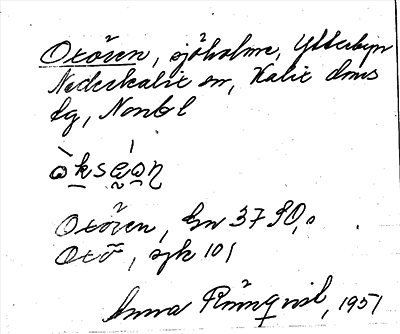 Oxören, sjöholme, Ytterbyn
Nederkalix sn, Kalix dms
lg, Nonb l
Oxören, Gn 3790,
Oxö, sjk 101
Anna Rönnqvist, 1951